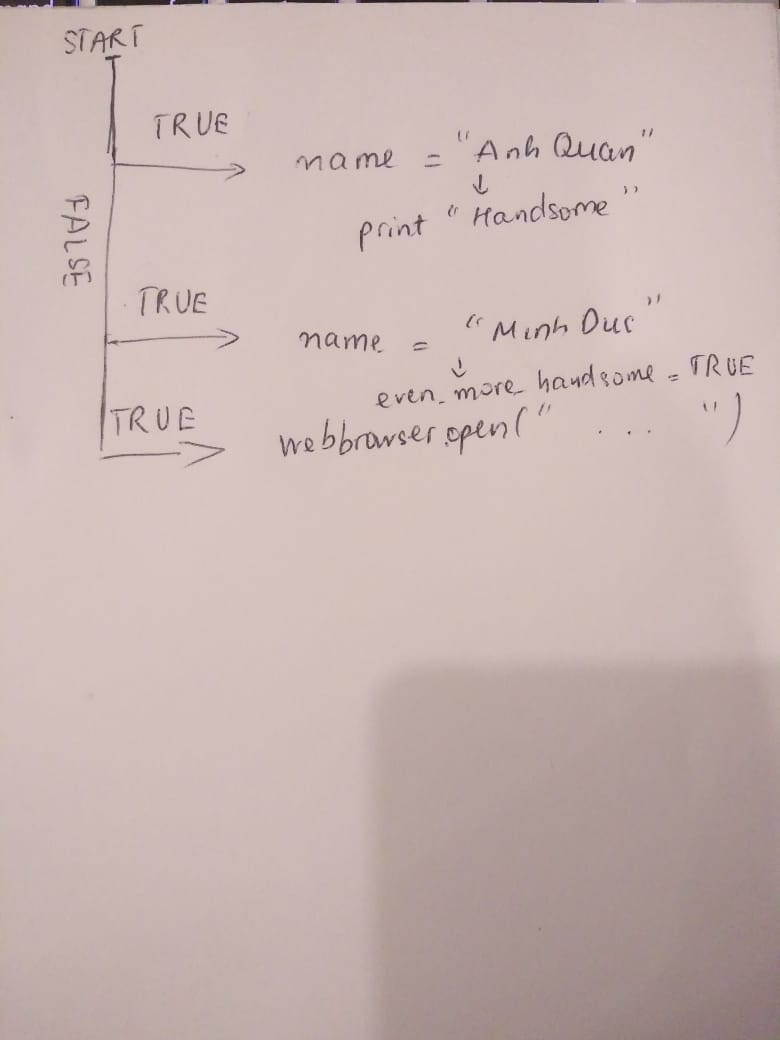 START
TRUE
name = "Anh Quan"
↓
print "Handsome"
FALSE
TRUE
name = "Minh Duc"
↓
even_more_handsome = TRUE
TRUE
webbrowser.open(" ... ")